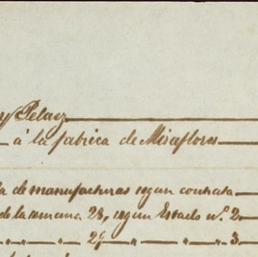 y Pelaez
á la fabrica de Miraflores
la de manufacturas segun contrata
de la semana 28, segun Estado nº 2
" " " 29 " " 3